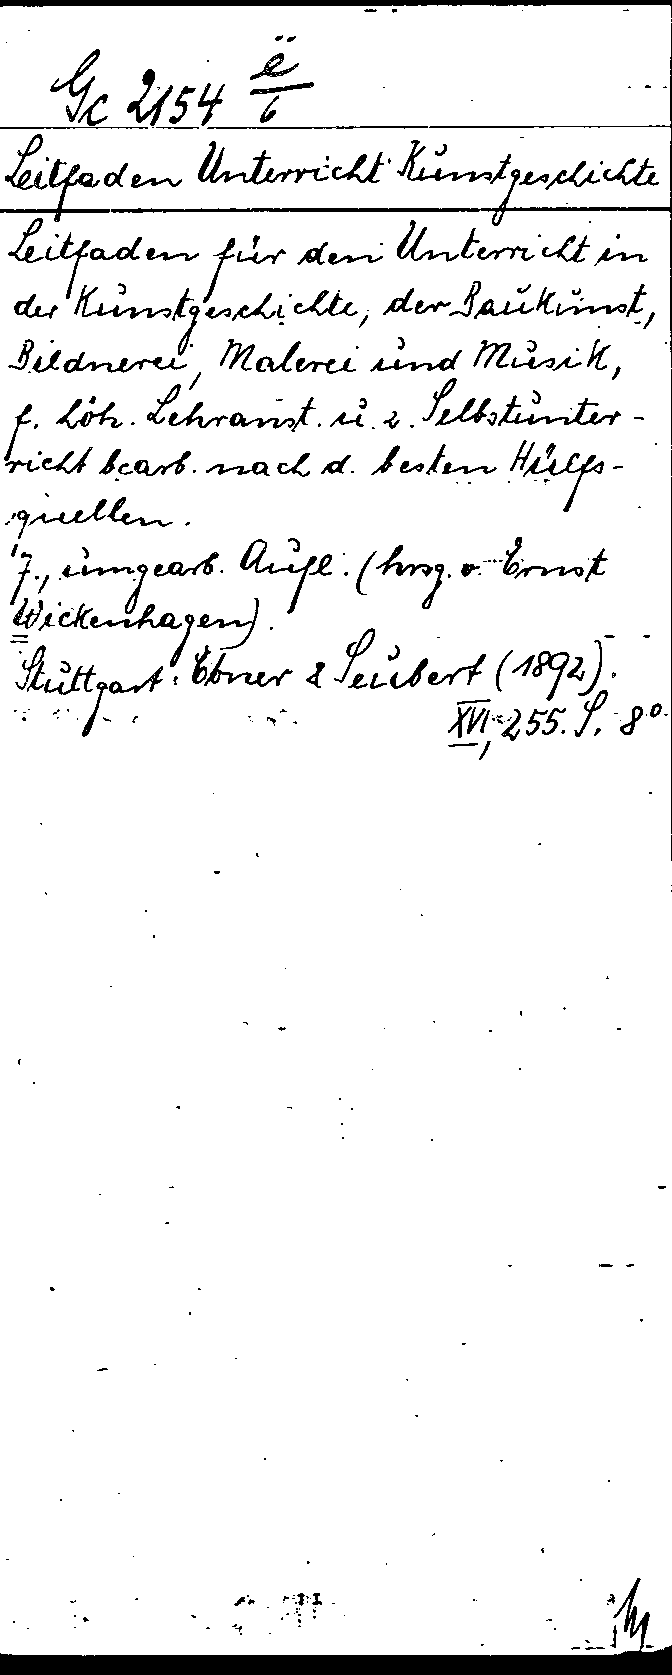 Gc 2154 ë/6
Leitfaden Unterricht Kunstgeschichte
Leitfaden für den Unterricht in
der Kunstgeschichte, der Baukunst,
Bildnerei, Malerei und Musik,
f. höh. Lehranst. u. z. Selbstunter-
richt bearb. nach d. besten Hülfs-
quellen.
7., umgearb. Aufl. (hrsg. v. Ernst
Wickenhagen).
Stuttgart: Ebner & Seubert (1892).
XVI, 255. S. 8°